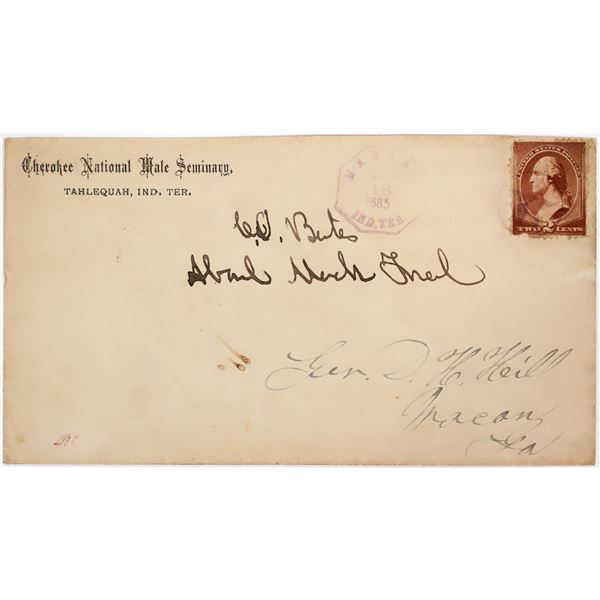 Cherokee National Male Seminary,
TAHLEQUAH, IND. TER.
1885
IND. TER
UNITED STATES POSTAGE
TWO 2 CENTS
C.O. Bates
About
Gen. D. H. Hill
Macon,
Ga